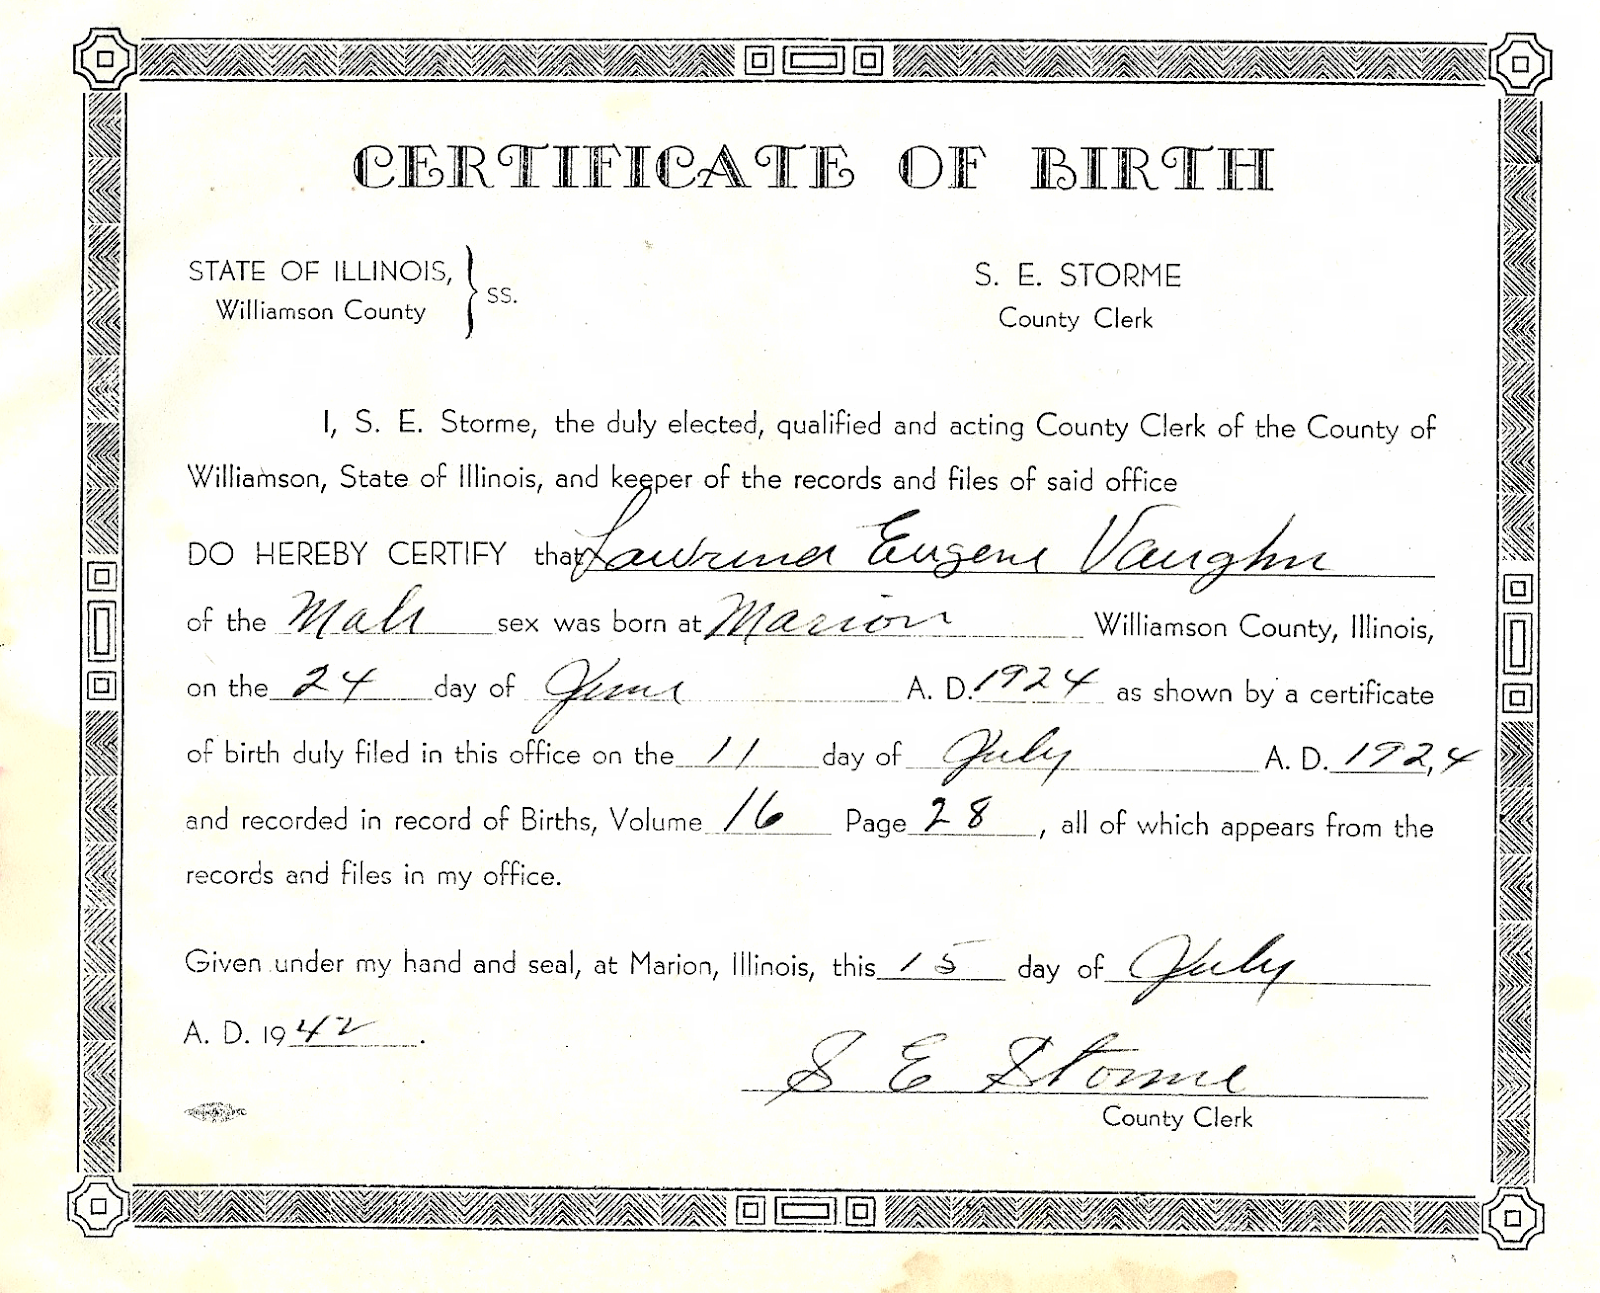 CERTIFICATE OF BIRTH
STATE OF ILLINOIS,
Williamson County
} SS.
S. E. STORME
County Clerk
I, S. E. Storme, the duly elected, qualified and acting County Clerk of the County of
Williamson, State of Illinois, and keeper of the records and files of said office
DO HEREBY CERTIFY that Lawrence Eugene Vaughn
of the Male sex was born at Marion Williamson County, Illinois,
on the 24 day of June A. D. 1924 as shown by a certificate
of birth duly filed in this office on the 11 day of July A. D. 1924
and recorded in record of Births, Volume 16 Page 28, all of which appears from the
records and files in my office.
Given under my hand and seal, at Marion, Illinois, this 15 day of July
A. D. 1942.
S E Storme
County Clerk